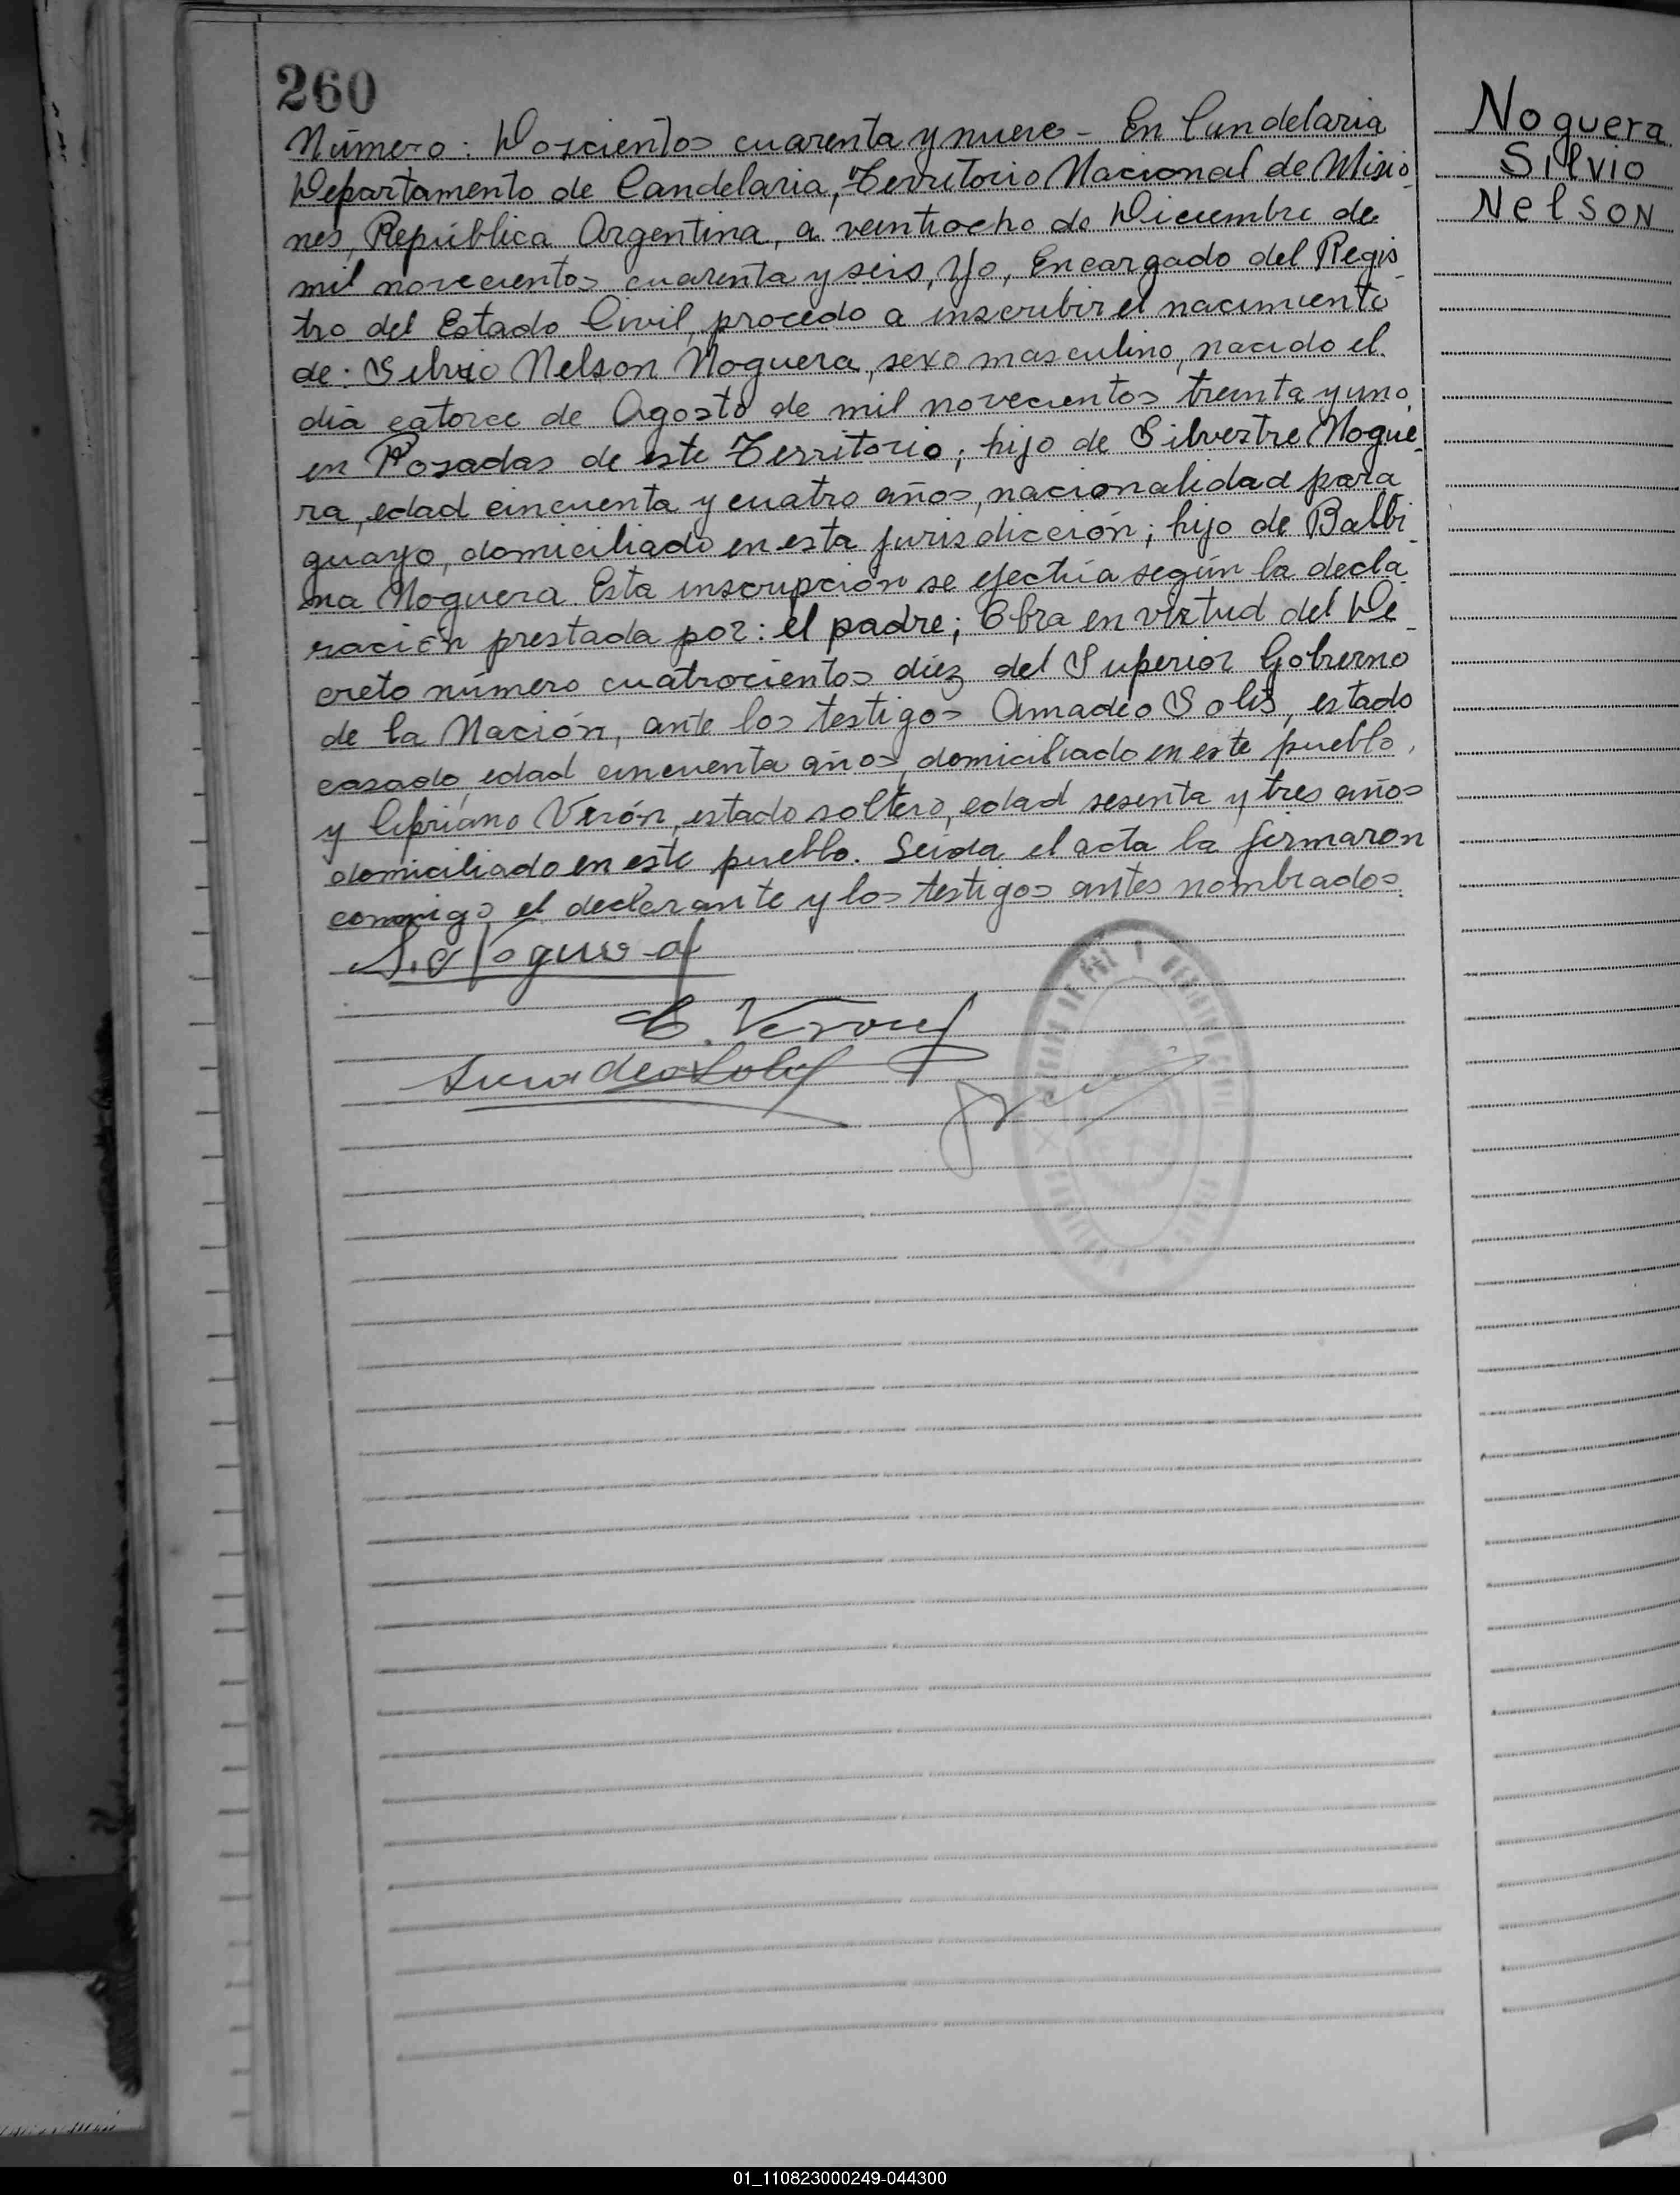 260
Número: Doscientos cuarenta y nueve - En Candelaria
Departamento de Candelaria, Territorio Nacional de Misio_
nes, República Argentina, a veintiocho de Diciembre de
mil novecientos cuarenta y seis, Yo, Encargado del Regis_
tro del Estado Civil, procedo a inscribir el nacimiento
de: Silvio Nelson Noguera, sexo masculino, nacido el
día catorce de Agosto de mil novecientos treinta y uno,
en Posadas de este Territorio; hijo de Silvestre Nogue_
ra, edad cincuenta y cuatro años, nacionalidad para_
guayo, domiciliado en esta jurisdicción; hijo de Balbi_
na Noguera. Esta inscripción se efectúa según la decla_
ración prestada por: el padre; Obra en virtud del De_
creto número cuatrocientos diez del Superior Gobierno
de la Nación, ante los testigos Amadeo Solis, estado
casado, edad cincuenta años, domiciliado en este pueblo,
y Cipriano Verón, estado soltero, edad sesenta y tres años
domiciliado en este pueblo. Leída el acta la firmaron
conmigo el declarante y los testigos antes nombrados.
S. Noguera
C. Veron
Amadeo Solis
Noguera
Silvio
Nelson
01_110823000249-044300